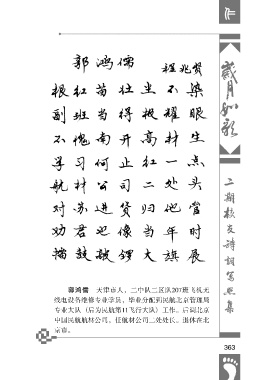 作
郭鸿儒
程兆贤
根红苗壮尘不染
副班当得极耀眼
不愧南开高材生
学习何止红一点
航材公司二处头
对苏进货归他管
劝君也像当年时
擂鼓敲锣大旗展
郭鸿儒 天津市人，二中队二区队207班飞机无
线电设备维修专业学员，毕业分配到民航北京管理局
专业大队（后为民航第11飞行大队）工作。后调北京
中国民航航材公司，任航材公司二处处长。退休在北
京市。
岁月如歌
二期校友诗词写照集
363